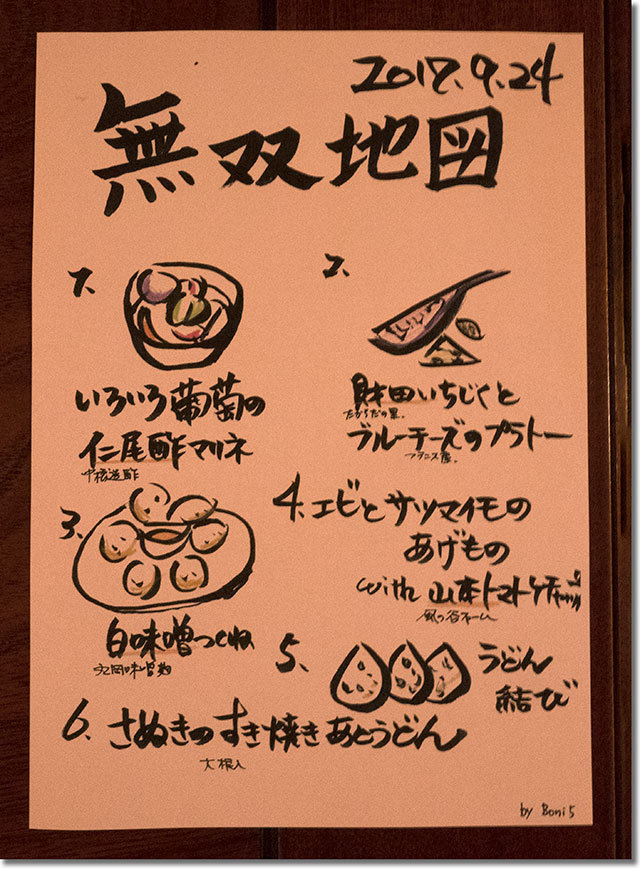 2017.9.24
無双地図
1.
いろいろ葡萄の
仁尾酢マリネ
中橋造酢
2.
財田いちじくと
たからだの里.
ブルーチーズのプラトー
フランス産.
3.
白味噌つくね
4. エビとサツマイモの
あげもの
with 山本トマトケチャップ
風の谷ファーム
5.
うどん
結び
6. さぬきのすき焼きあとうどん
大根入
by Boni5